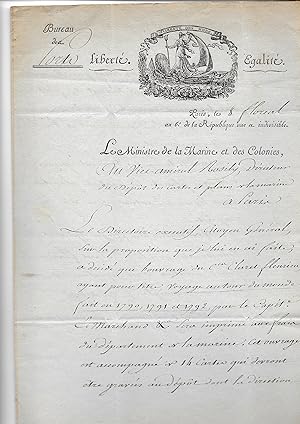 Bureau
des
Ports
Liberté.
Égalité.
Paris, le 8 floréal
an 6e de la République une et indivisible.
Le Ministre de la Marine et des Colonies,
Au Vice amiral Rosily, Directeur
du dépôt des cartes & plans de la marine
à Paris
Le Directoire exécutif, Citoyen Général,
sur la proposition que je lui en ai faite,
a décidé que l'ouvrage du Cen Claret fleurieu
ayant pour titre Voyage autour du monde
fait en 1790, 1791 et 1792, par le Capne
Le Marchand & Sera imprimé aux frais
du département de la marine; Cet ouvrage
est accompagné de 14 Cartes qui devront
être gravées au dépôt dont la direction